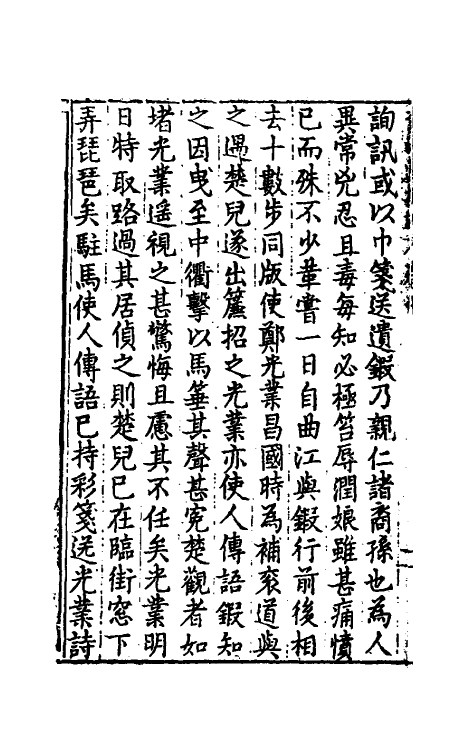 詢訊或以巾箋送遺鍜乃親仁諸裔孫也為人
異常兇忍且毒每知必極笞辱潤娘雖甚痛憤
已而殊不少革嘗一日自曲江與鍜行前後相
去十數步同版使鄭光業昌國時為補衮道與
之遇楚兒遂出簾招之光業亦使人傳語鍜知
之因曵至中衢擊以馬箠其聲甚寃楚觀者如
堵光業遥視之甚驚悔且慮其不任矣光業明
日特取路過其居偵之則楚兒已在臨街窓下
弄琵琶矣駐馬使人傳語已持彩箋送光業詩